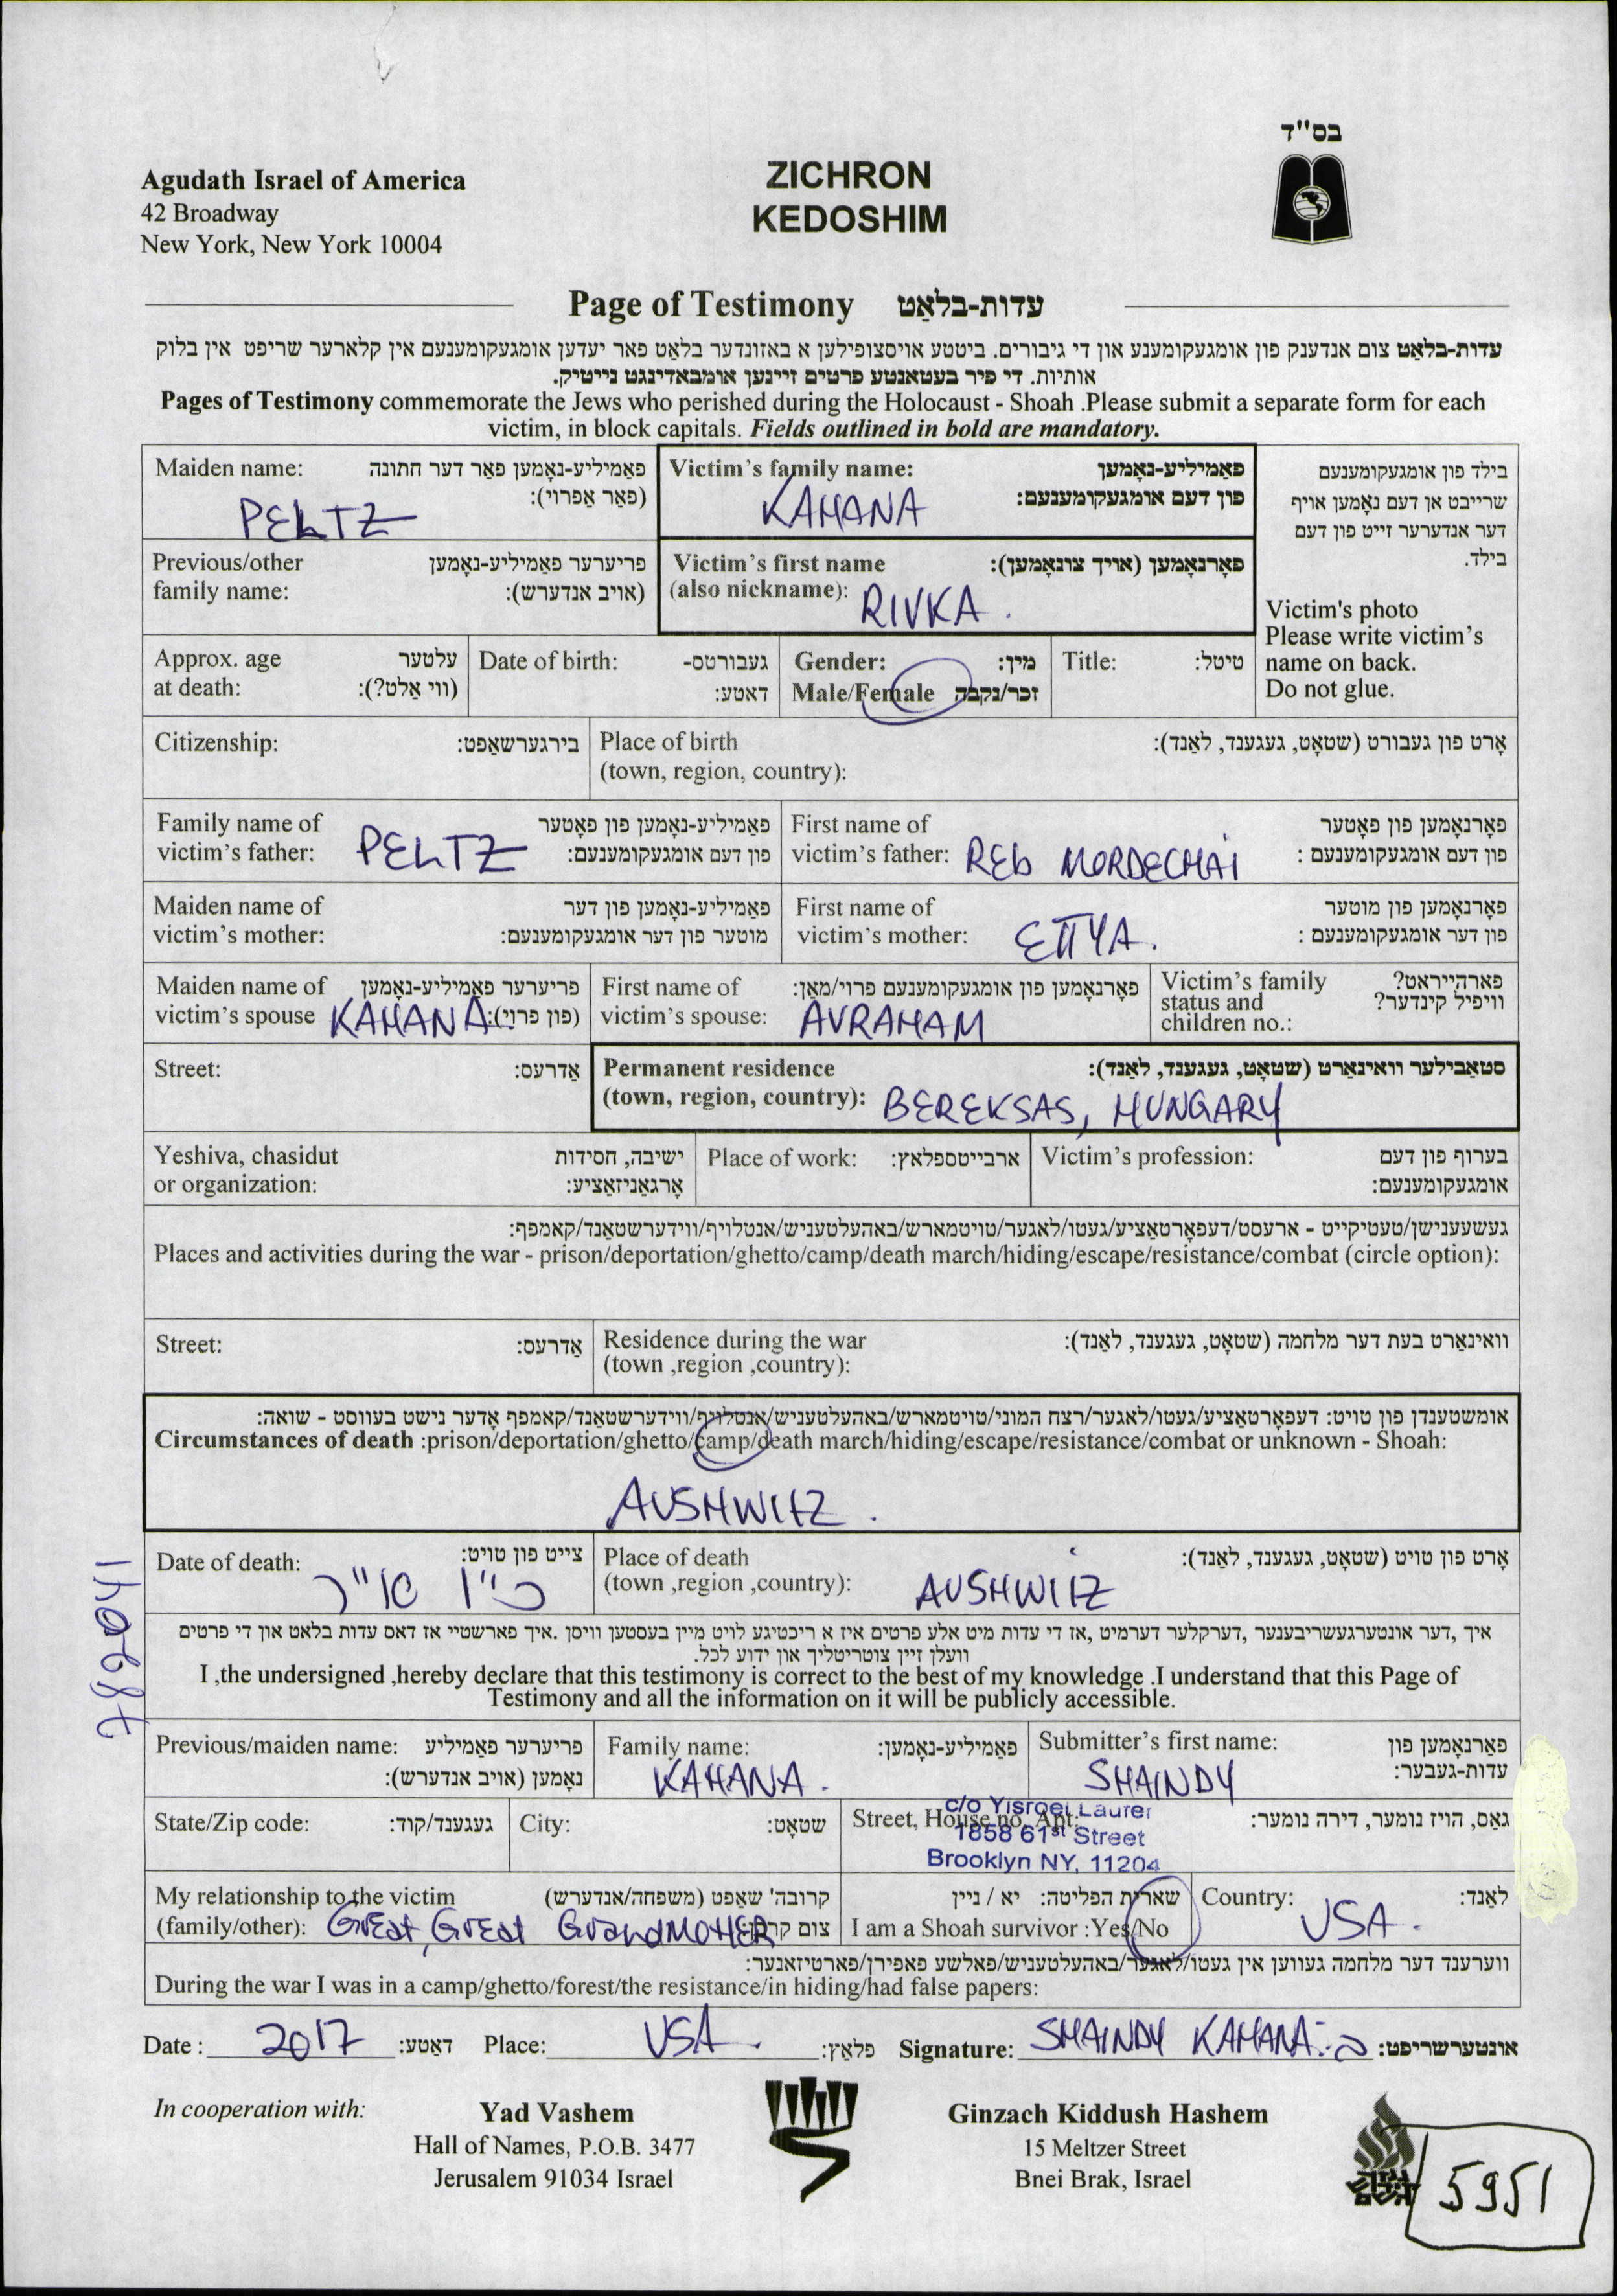 בס"ד
Agudath Israel of America
42 Broadway
New York, New York 10004
ZICHRON
KEDOSHIM
Page of Testimony עדות-בלאַט
עדות-בלאַט צום אנדענק פון אומגעקומענע און די גיבורים. ביטטע אויסצופילען א באזונדער בלאַט פאר יעדען אומגעקומענעם אין קלארער שריפט אין בלוק
אותיות. די פיר בעטאנטע פרטים זיינען אומבאדינגט נייטיק.
Pages of Testimony commemorate the Jews who perished during the Holocaust - Shoah .Please submit a separate form for each
victim, in block capitals. Fields outlined in bold are mandatory.
Maiden name: פאַמיליע-נאָמען פאַר דער חתונה
(פאַר אַפרוי):
PELTZ
Victim's family name: פאַמיליע-נאָמען
פון דעם אומגעקומענעם:
KAHANA
בילד פון אומגעקומענעם
שרייבט אן דעם נאָמען אויף
דער אנדערער זייט פון דעם
בילד.
Victim's photo
Please write victim's
name on back.
Do not glue.
Previous/other פריערער פאַמיליע-נאָמען
family name: (אויב אנדערש):
Victim's first name פאָרנאָמען (אויך צונאָמען):
(also nickname): RIVKA .
Approx. age עלטער
at death: (ווי אַלט?):
Date of birth: געבורטס-
דאטע:
Gender: מין:
Male/Female זכר/נקבה
Title: טיטל:
Citizenship: בירגערשאַפט:
Place of birth אָרט פון געבורט (שטאָט, געגענד, לאַנד):
(town, region, country):
Family name of פאַמיליע-נאָמען פון פאָטער
victim's father: PELTZ פון דעם אומגעקומענעם:
First name of פאָרנאָמען פון פאָטער
victim's father: REb MORDECHAi פון דעם אומגעקומענעם :
Maiden name of פאַמיליע-נאָמען פון דער
victim's mother: מוטער פון דער אומגעקומענעם:
First name of פאָרנאָמען פון מוטער
victim's mother: ETTYA. פון דער אומגעקומענעם :
Maiden name of פריערער פאַמיליע-נאָמען
victim's spouse KAHANA (פון פרוי):
First name of פאָרנאָמען פון אומגעקומענעם פרוי/מאַן:
victim's spouse: AVRAHAM
Victim's family פארהייראט?
status and וויפיל קינדער?
children no.:
Street: אַדרעס:
Permanent residence סטאַבילער וואוינאָרט (שטאָט, געגענד, לאַנד):
(town, region, country): BEREKSAS, HUNGARY
Yeshiva, chasidut ישיבה, חסידות
or organization: אָרגאַניזאַציע:
Place of work: ארבייטספלאץ:
Victim's profession: בערוף פון דעם
אומגעקומענעם:
געשעענישן/טעטיקייט - ארעסט/דעפאָרטאַציע/געטו/לאגער/טויטמארש/באהעלטעניש/אנטלויף/ווידערשטאַנד/קאמפף:
Places and activities during the war - prison/deportation/ghetto/camp/death march/hiding/escape/resistance/combat (circle option):
Street: אַדרעס:
Residence during the war וואוינאָרט בעת דער מלחמה (שטאָט, געגענד, לאַנד):
(town ,region ,country):
אומשטענדן פון טויט: דעפאָרטאַציע/געטו/לאגער/רצח המוני/טויטמארש/באהעלטעניש/אנטלויף/ווידערשטאַנד/קאמפף אָדער נישט בעווסט - שואה:
Circumstances of death :prison/deportation/ghetto/camp/death march/hiding/escape/resistance/combat or unknown - Shoah:
AUSHWITZ .
Date of death: צייט פון טויט:
Place of death אָרט פון טויט (שטאָט, געגענד, לאַנד):
(town ,region ,country): AUSHWITZ
איך ,דער אונטערגעשריבענער ,דערקלער דערמיט ,אז די עדות מיט אלע פרטים איז א ריכטיגע לויט מיין בעסטען וויסן .איך פארשטיי אז דאס עדות בלאט און די פרטים
וועלן זיין צוטריטליך און ידוע לכל.
I ,the undersigned ,hereby declare that this testimony is correct to the best of my knowledge .I understand that this Page of
Testimony and all the information on it will be publicly accessible.
Previous/maiden name: פריערער פאַמיליע
נאָמען (אויב אנדערש):
Family name: פאַמיליע-נאָמען:
KAHANA .
Submitter's first name: פאָרנאָמען פון
עדות-געבער:
SHAINDY
State/Zip code: געגענד/קוד:
City: שטאָט:
Street, House no, Apt: גאַס, הויז נומער, דירה נומער:
c/o Yisroel Laufer
1858 61st Street
Brooklyn NY, 11204
My relationship to the victim קרובה' שאַפט (משפחה/אנדערש)
(family/other): GrEat, GrEat GrandMOtHER צום
שארית הפליטה: יא / ניין
I am a Shoah survivor :Yes/No
Country: לאַנד:
USA .
ווערענד דער מלחמה געווען אין געטו/לאגער/באהעלטעניש/פאלשע פאפירן/פארטיזאנער:
During the war I was in a camp/ghetto/forest/the resistance/in hiding/had false papers:
Date : 2017 דאַטע: Place: USA . פלאַץ: Signature: SHAINDY KAHANA אונטערשריפט:
In cooperation with:
Yad Vashem
Hall of Names, P.O.B. 3477
Jerusalem 91034 Israel
Ginzach Kiddush Hashem
15 Meltzer Street
Bnei Brak, Israel
5951